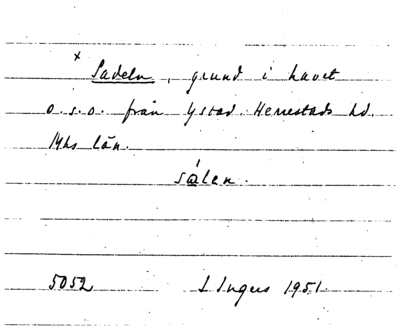 x Sadeln, grund i havet
o.s.o. från Ystad. Herrestads hd.
Mhs län.
sɑ́len.
5052 I Ingers 1951.